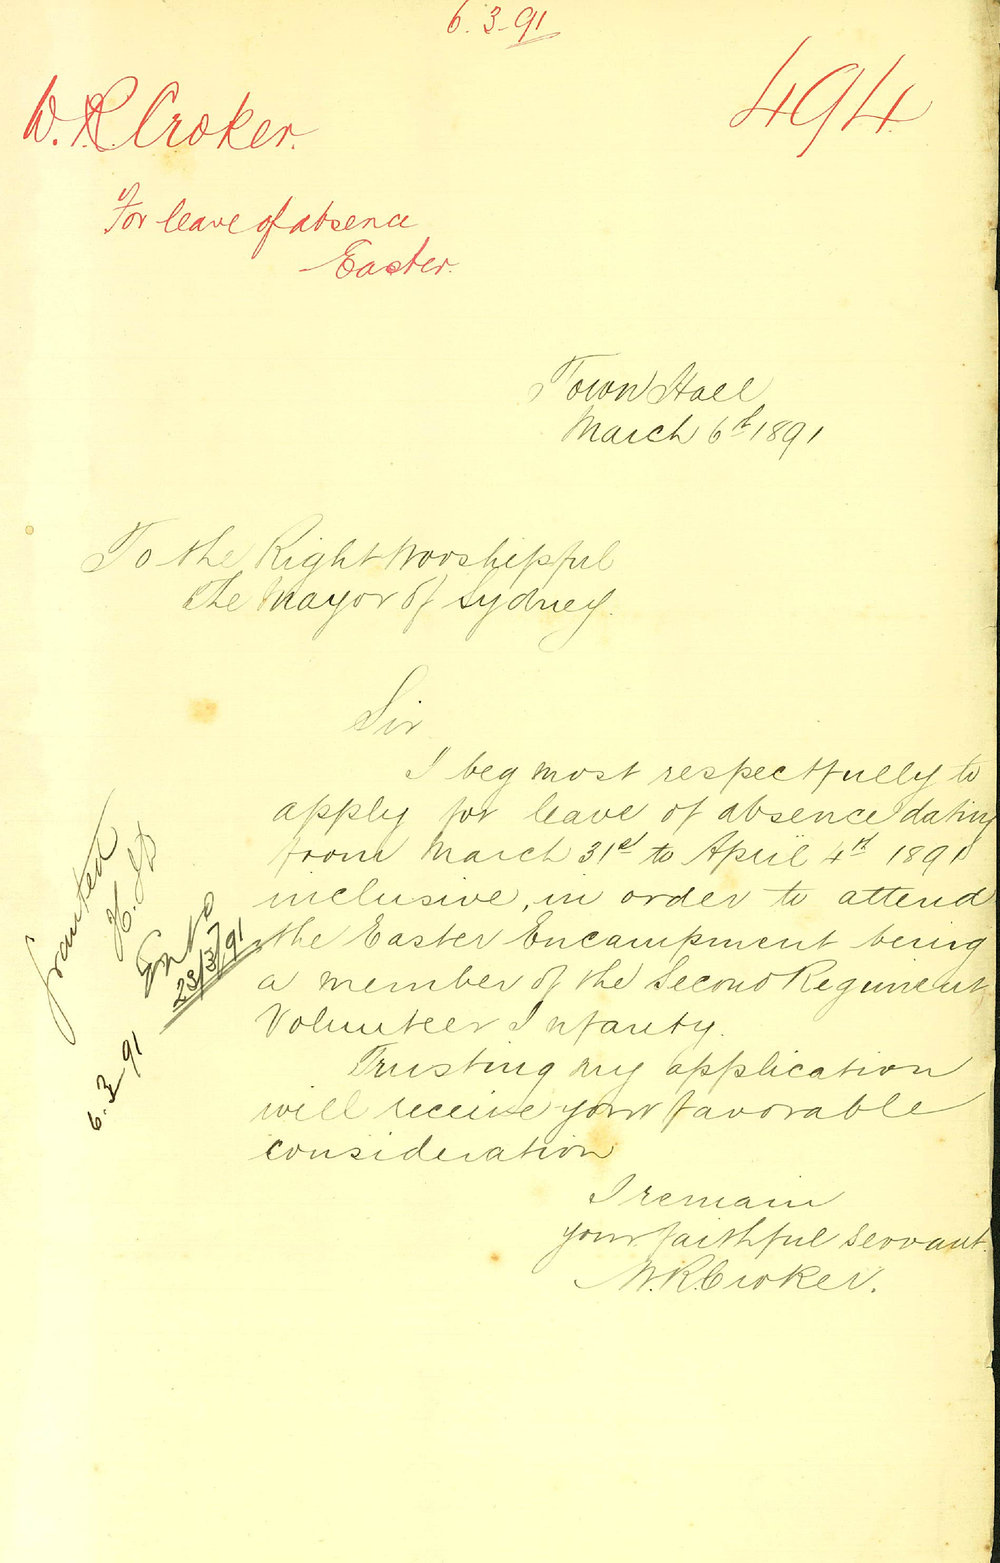 6.3.91
494
W. R. Croker.
For leave of absence
Easter.
Town Hall
March 6th 1891
To the Right Worshipful
The Mayor of Sydney.
Sir
I beg most respectfully to
apply for leave of absence dating
from March 31st to April 4th 1891
inclusive, in order to attend
the Easter Encampment being
a member of the Second Regiment
Volunteer Infantry.
Trusting my application
will receive your favorable
consideration
I remain
your faithful servant.
W. R. Croker.
Granted
6.3.91
23/3/91